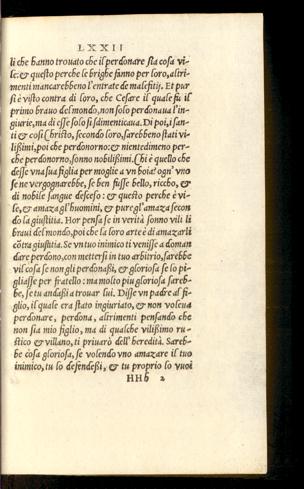 LXXII
li che hanno trouato che il perdonare sia cosa vi-
le: & questo perche le brighe fanno per loro, altri-
menti mancarebbeno l'entrate de malefitij. Et pur
si è visto contra di loro, che Cesare il quale fù il
primo brauo del mondo, non solo perdonaua l'in-
giurie, ma di esse solo si sdimenticaua. Di poi, i san-
ti & cosi Christo, secondo loro, sarebbeno stati vi-
lissimi, poi che perdonorno: & nientedimeno per-
che perdonorno, sonno nobilissimi. Chi è quello che
desse vna sua figlia per moglie a vn boia? ogn' vno
se ne vergognarebbe, se ben fusse bello, riccho, &
di nobile sangue desceso: & questo perche è vi-
le, & amaza gl'huomini, & pure gl'amaza secon
do la giustitia. Hor pensa se in verità sonno vili li
braui del mondo, poi che la loro arte è di amazarli
cōtra giustitia. Se vn tuo inimico ti venisse a doman
dare perdono, con mettersi in tuo arbitrio, sarebbe
vil cosa se non gli perdonassi, & gloriosa se lo pi-
gliasse per fratello: ma molto piu gloriosa sareb-
be, se tu andassi a trouar lui. Disse vn padre al fi-
glio, il quale era stato ingiuriato, & non voleua
perdonare, perdona, altrimenti pensando che
non sia mio figlio, ma di qualche vilissimo ru-
stico & villano, ti priuarò dell'heredità. Sareb-
be cosa gloriosa, se volendo vno amazare il tuo
inimico, tu lo defendessi, & tu proprio lo vuoi
HHh 2